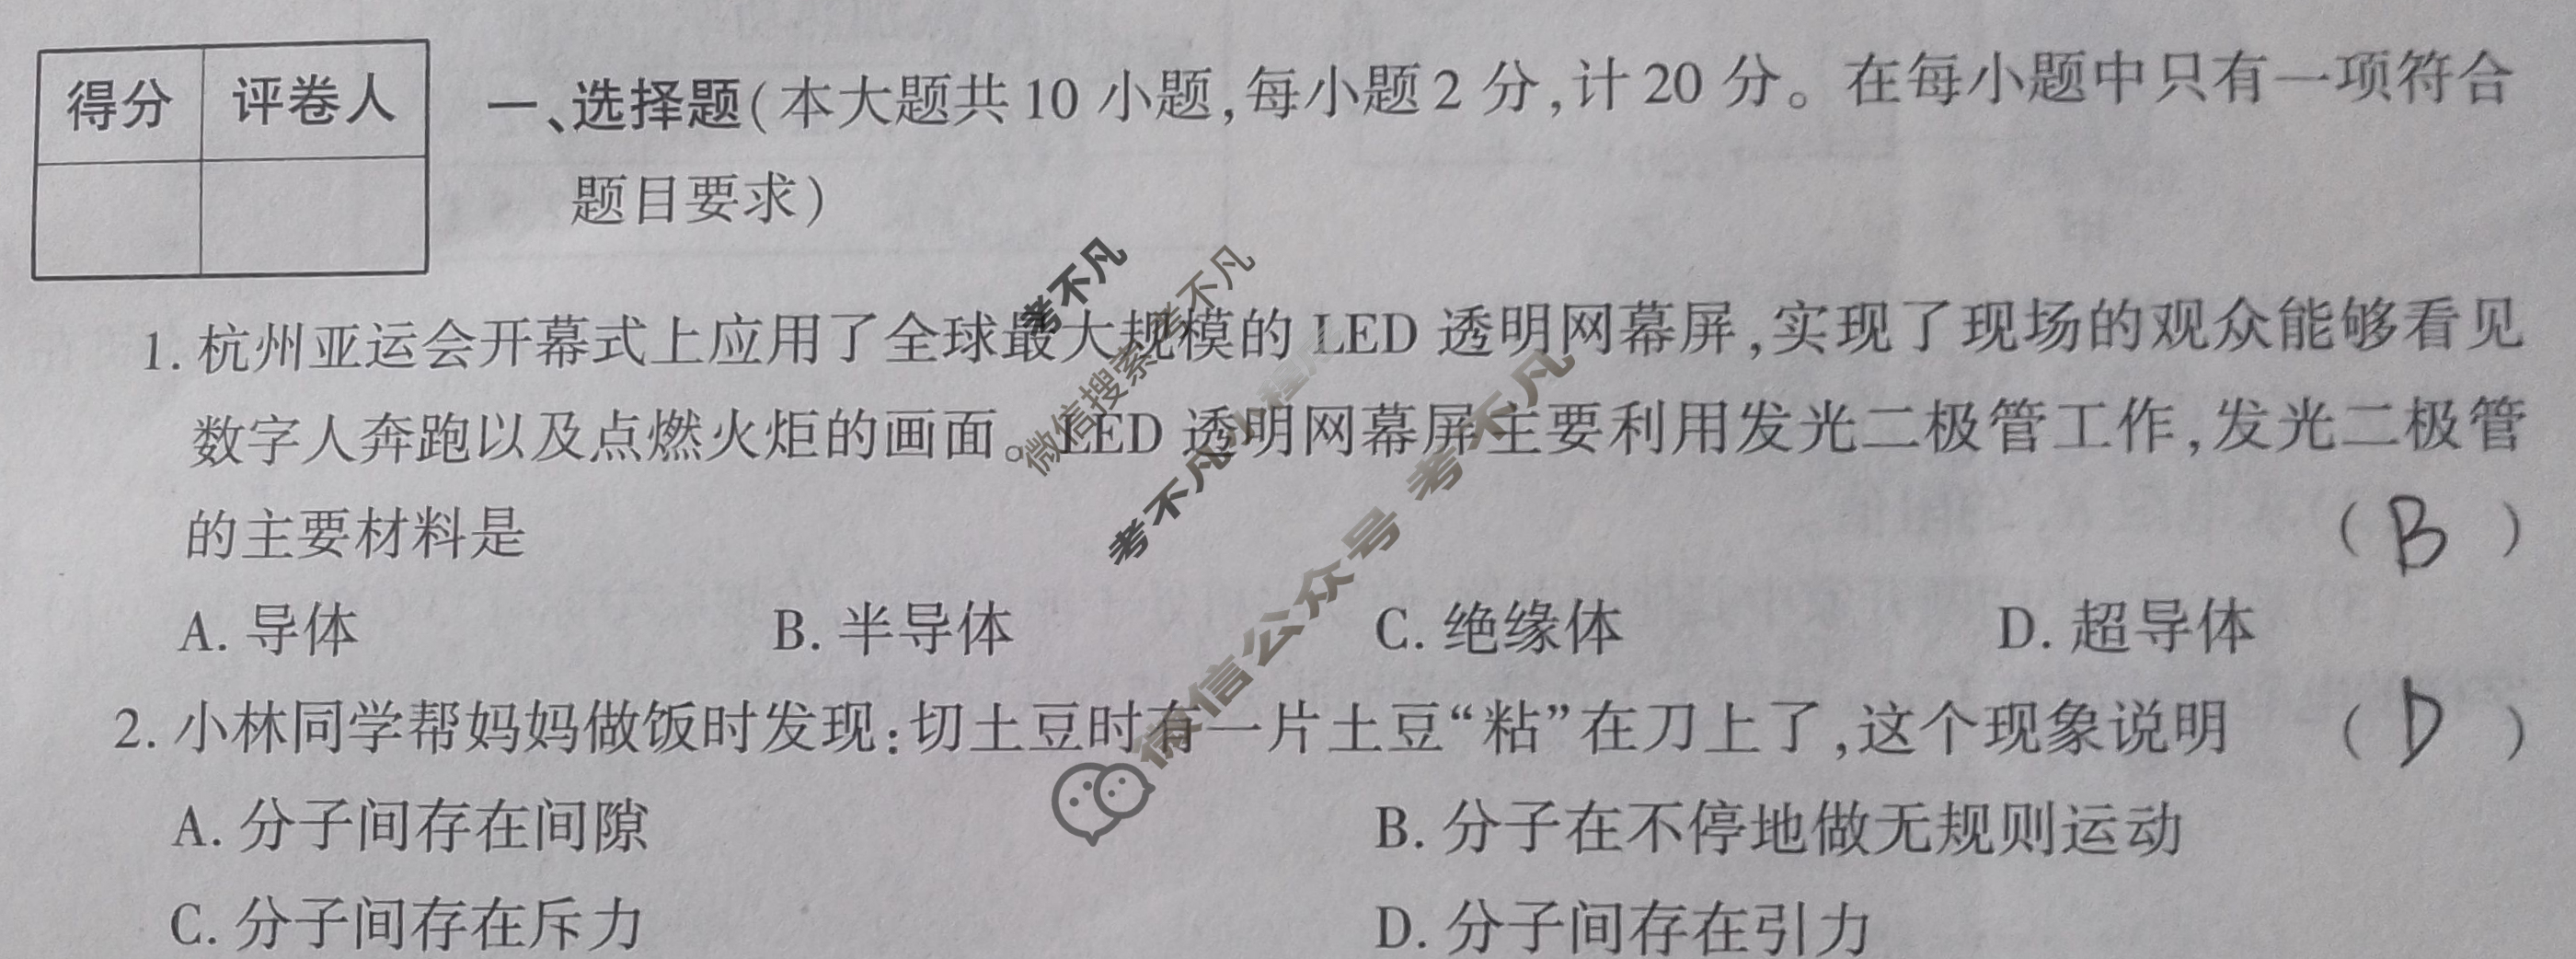 得分 评卷人
一、选择题(本大题共10 小题,每小题2 分,计20 分。在每小题中只有一项符合
题目要求)
1. 杭州亚运会开幕式上应用了全球最大规模的 LED 透明网幕屏,实现了现场的观众能够看见
数字人奔跑以及点燃火炬的画面。LED 透明网幕屏主要利用发光二极管工作,发光二极管
的主要材料是 ( B )
A. 导体 B. 半导体 C. 绝缘体 D. 超导体
2. 小林同学帮妈妈做饭时发现:切土豆时有一片土豆“粘”在刀上了,这个现象说明 ( D )
A. 分子间存在间隙 B. 分子在不停地做无规则运动
C. 分子间存在斥力 D. 分子间存在引力
考不凡
微信搜索 考不凡
考不凡
微信公众号 考不凡